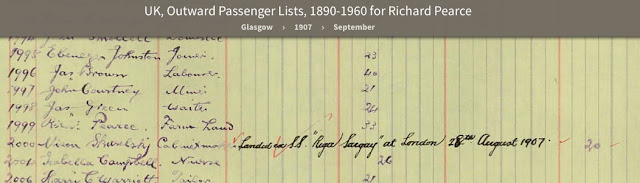 UK, Outward Passenger Lists, 1890-1960 for Richard Pearce
Glasgow › 1907 › September
1995 Ebenezer Johnston Joiner 23
1996 Jas Brown Labourer 40
1997 John Courtney Miner 21
1998 Jas Green Waiter 24
1999 Pearce Farm Land 33
2000 Cabinetmaker Landed ex S.S. "Riga" at London 28th August 1907. 20
2001 Isabella Campbell Nurse 26
2006 Harry C Marriott Tailor 21